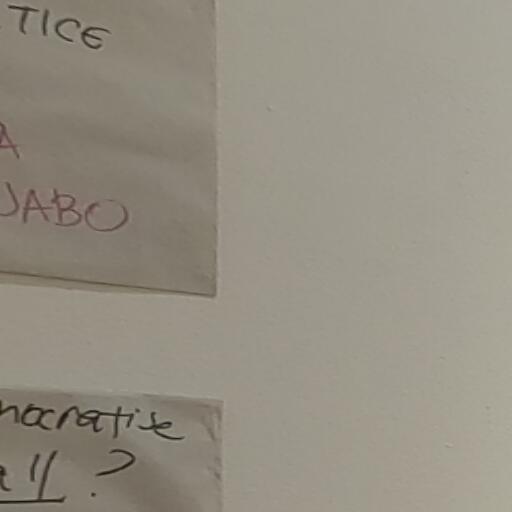 TICE
A
JABO
mocratise
all?